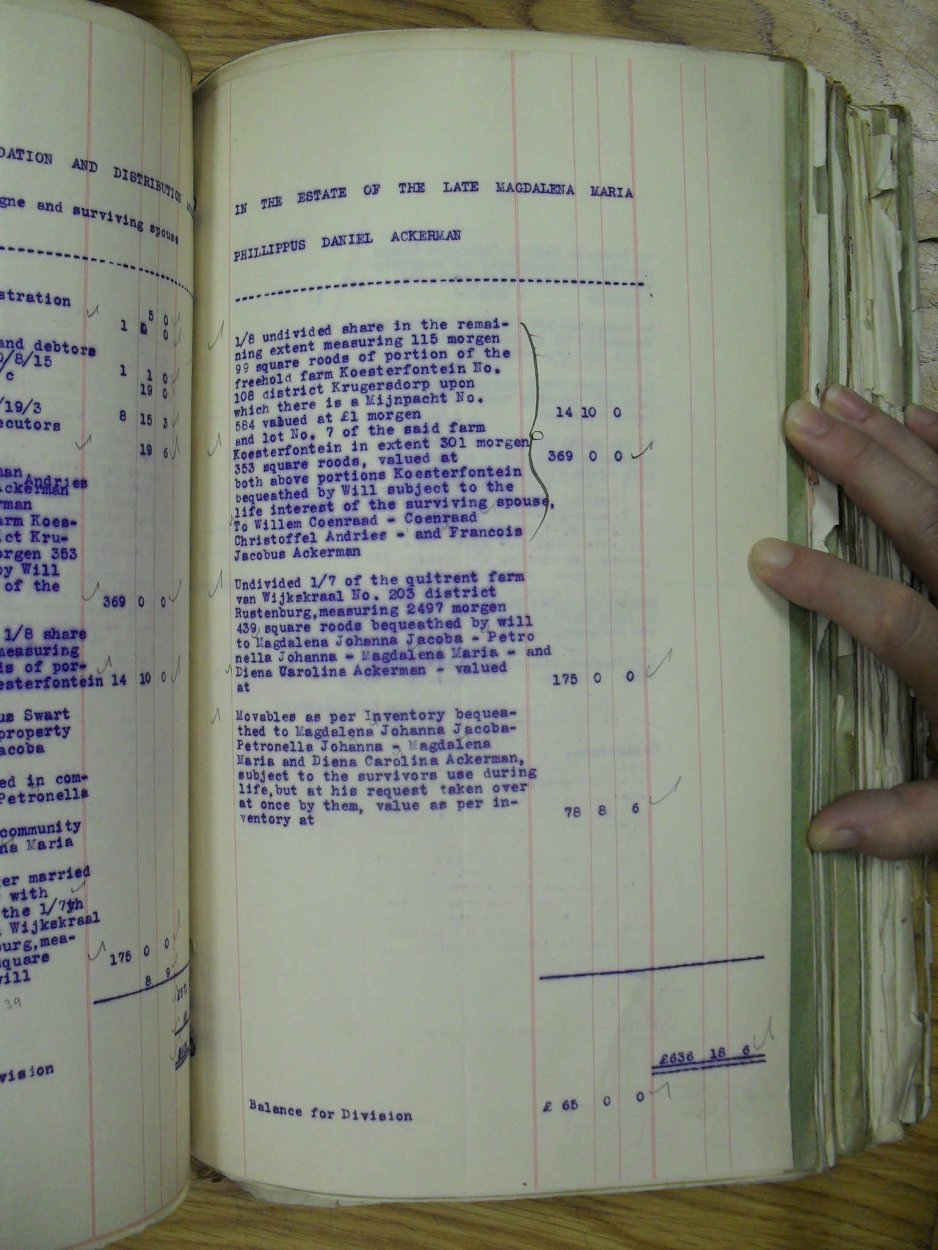 DATION AND DISTRIBUTION
gne and surviving spouse
stration
5 0
1 0
and debtors
0/8/15
c 1 1 0
19 0
/19/3
ecutors 8 15 3
19 6
man
Andries
Ackerman
rman
arm Koes-
ict Kru-
orgen 353
by Will
of the
369 0 0
1/8 share
measuring
ds of por-
esterfontein 14 10 0
us Swart
property
acoba
ed in com-
Petronella
community
na Maria
er married
with
the 1/7th
Wijkskraal
burg,mea-
square 175 0 0
will 8 9
39
vision
IN THE ESTATE OF THE LATE MAGDALENA MARIA
PHILLIPPUS DANIEL ACKERMAN
1/8 undivided share in the remai-
ning extent measuring 115 morgen
99 square roods of portion of the
freehold farm Koesterfontein No.
108 district Krugersdorp upon
which there is a Mijnpacht No.
584 valued at £1 morgen 14 10 0
and lot No. 7 of the said farm
Koesterfontein in extent 301 morgen
353 square roods, valued at 369 0 0
both above portions Koesterfontein
bequeathed by Will subject to the
life interest of the surviving spouse,
To Willem Coenraad - Coenraad
Christoffel Andries - and Francois
Jacobus Ackerman
Undivided 1/7 of the quitrent farm
van Wijkskraal No. 203 district
Rustenburg,measuring 2497 morgen
439 square roods bequeathed by will
to Magdalena Johanna Jacoba - Petro
nella Johanna - Magdalena Maria - and
Diena Carolina Ackerman - valued
at 175 0 0
Movables as per Inventory bequea-
thed to Magdalena Johanna Jacoba-
Petronella Johanna - Magdalena
Maria and Diena Carolina Ackerman,
subject to the survivors use during
life,but at his request taken over
at once by them, value as per in-
ventory at 78 8 6
£636 18 6
Balance for Division £ 65 0 0